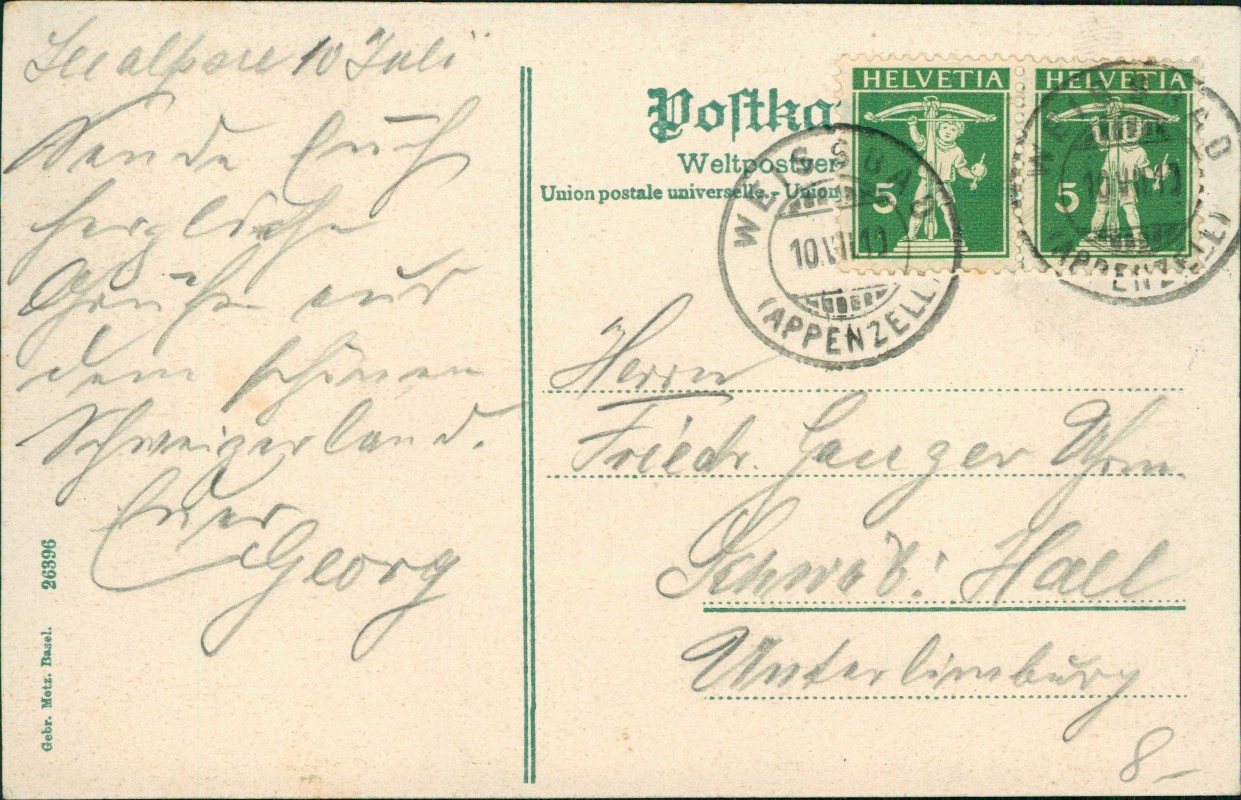 Seealpsee 10 Juli
Sende Euch
herzliche
Grüße aus
dem schönen
Schweizerland.
Euer
Georg
Gebr. Metz. Basel. 26396
Postka
Weltpostver
Union postale universelle. - Union
HELVETIA
5
HELVETIA
5
WEISSBAD
10.VII.10
(APPENZELL)
WEISSBAD
10.VII.10
(APPENZELL)
Herrn
Friedr.
Schwäb: Hall
Unterlimburg
8-